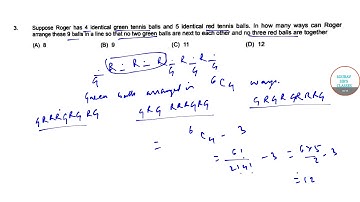 3. Suppose Roger has 4 identical green tennis balls and 5 identical red tennis balls. In how many ways can Roger
arrange these 9 balls in a line so that no two green balls are next to each other and no three red balls are together
(A) 8 (B) 9 (C) 11 (D) 12
R - R - R - R - R
G G G
Green balls arranged in ⁶C₄ ways.
GRRRGRGRG GRG RRRGRG GRGRGRRRG
= ⁶C₄ - 3
= 6!/2!4! - 3 = 6×5/2 - 3
= 12